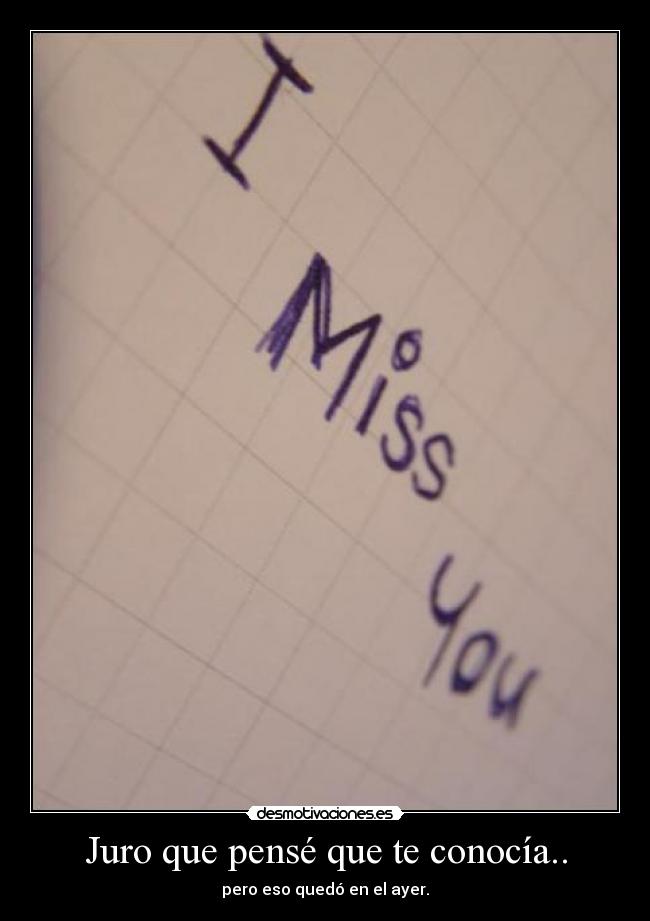 I
Miss
You
desmotivaciones.es
Juro que pensé que te conocía..
pero eso quedó en el ayer.